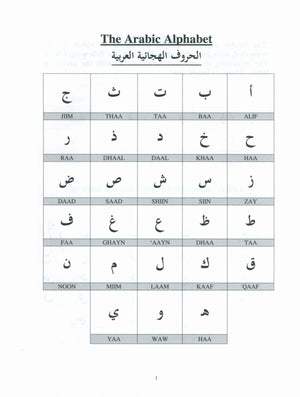 The Arabic Alphabet
الحروف الهجائية العربية
أ ب ت ث ج
JIIM THAA TAA BAA ALIF
ح خ د ذ ر
RAA DHAAL DAAL KHAA HAA
ز س ش ص ض
DAAD SAAD SHIIN SIIN ZAY
ط ظ ع غ ف
FAA GHAYN 'AAYN DHAA TAA
ق ك ل م ن
NOON MIIM LAAM KAAF QAAF
ه و ي
YAA WAW HAA
1